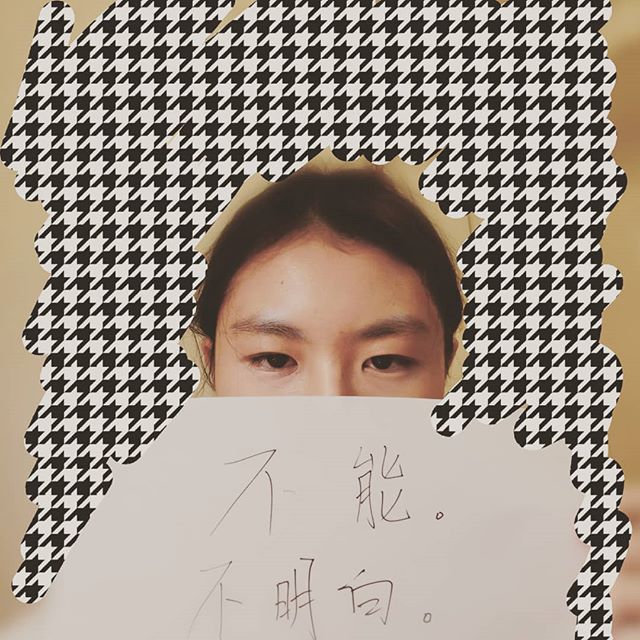 不能。
不明白。